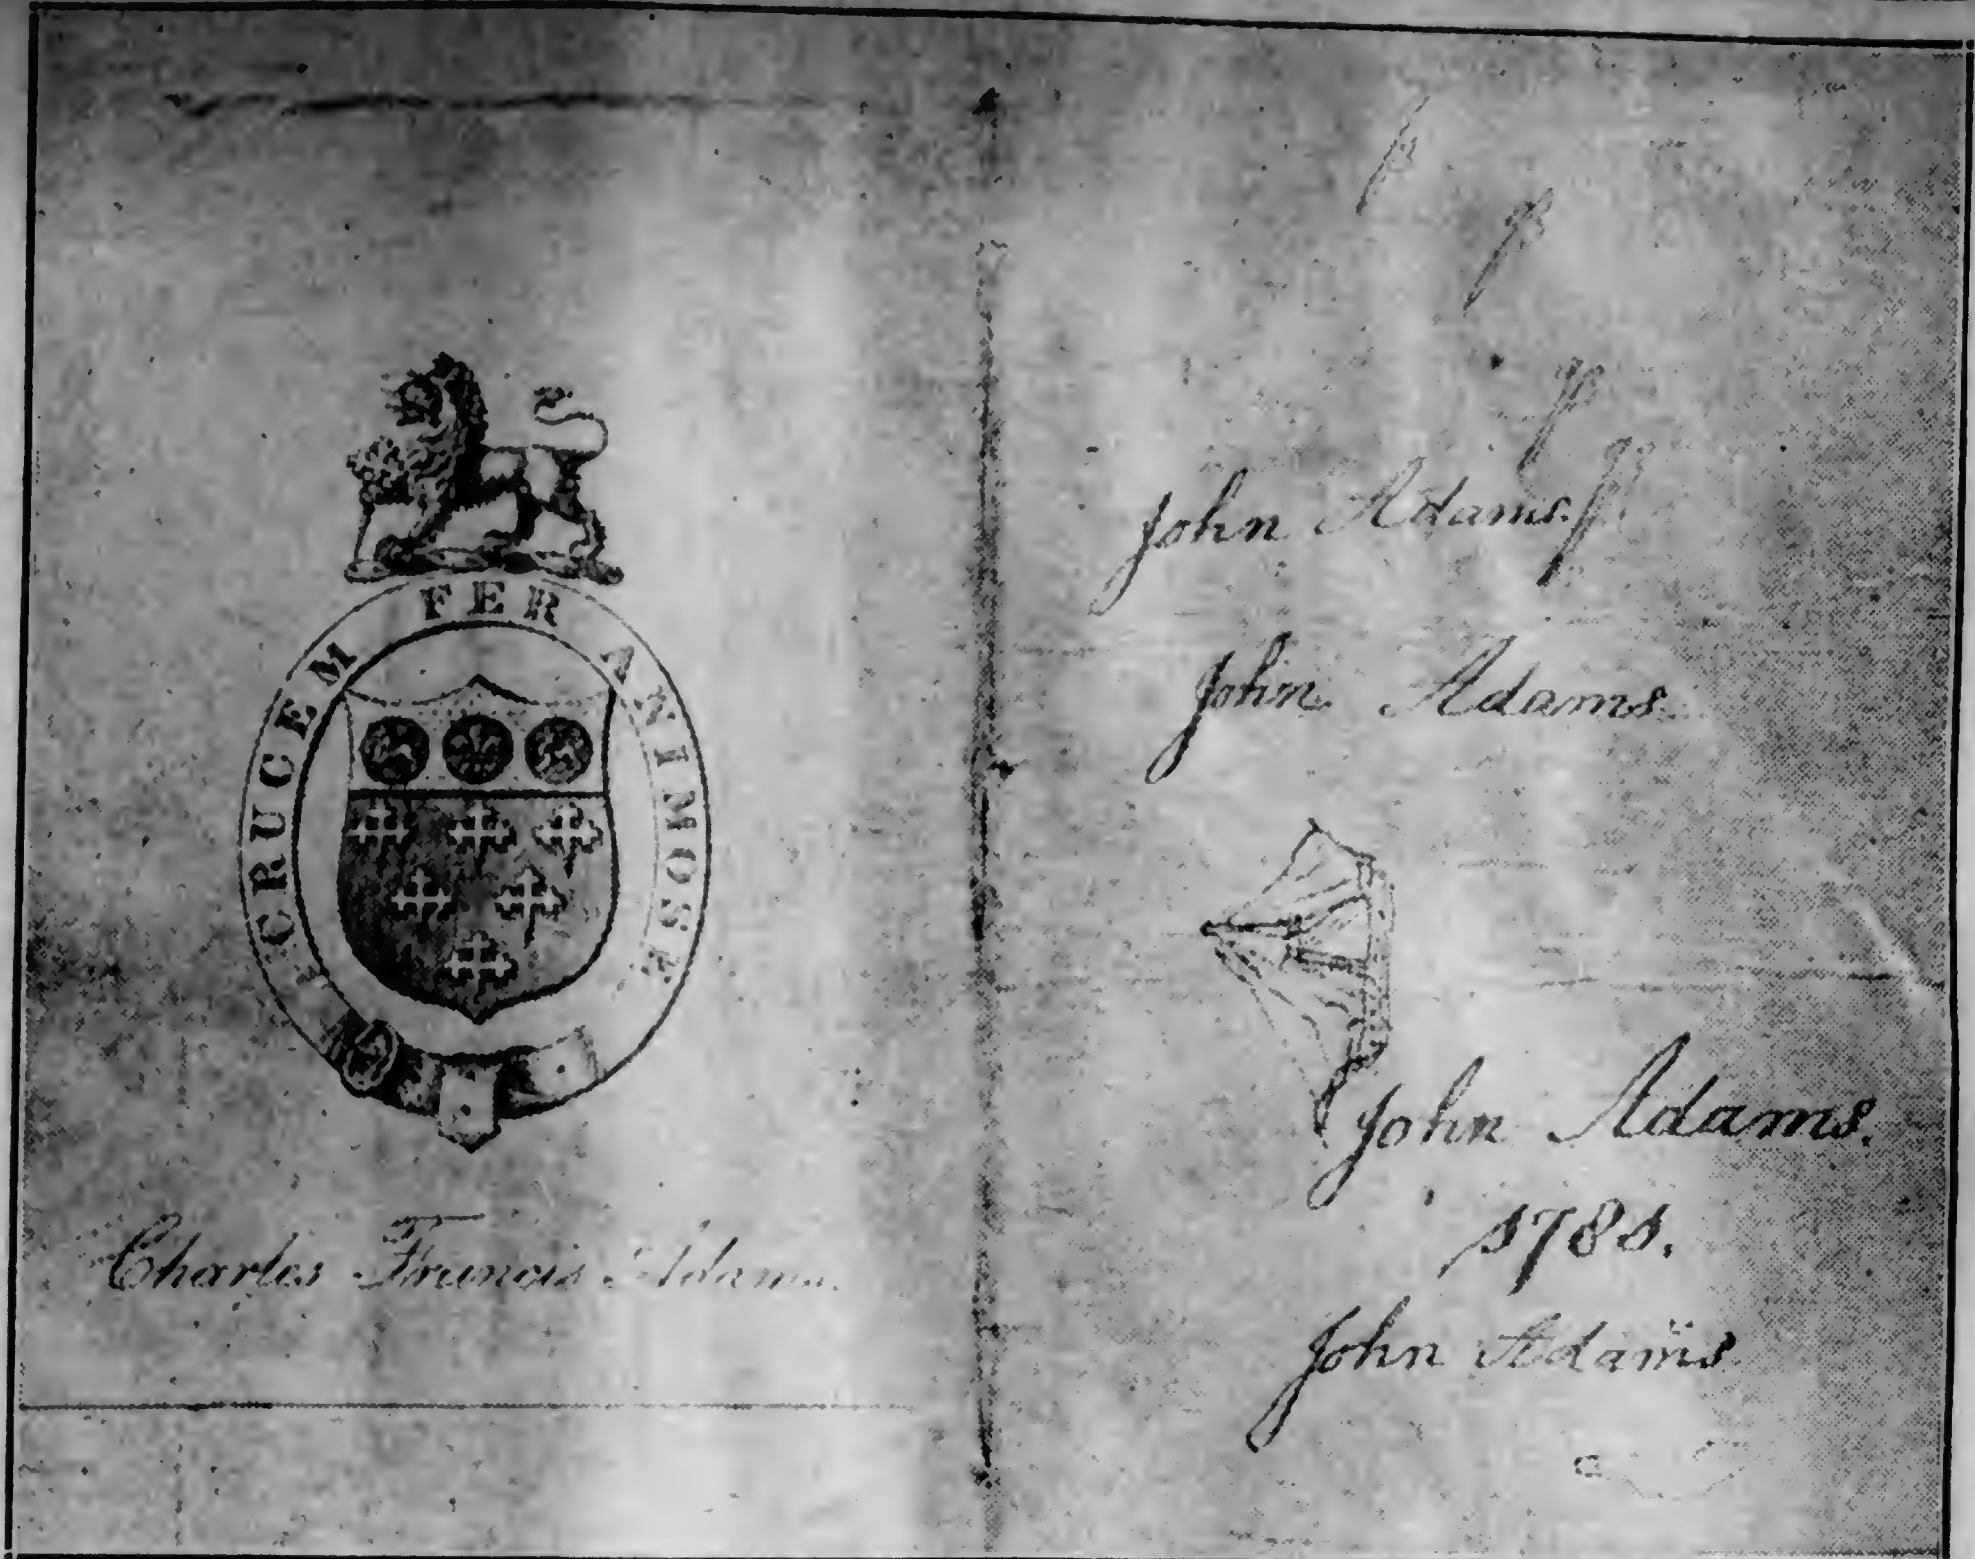 CRUCEM FER ANIMOSE
Charles Francis Adams.
John Adams.
John Adams
John Adams.
1781.
John Adams